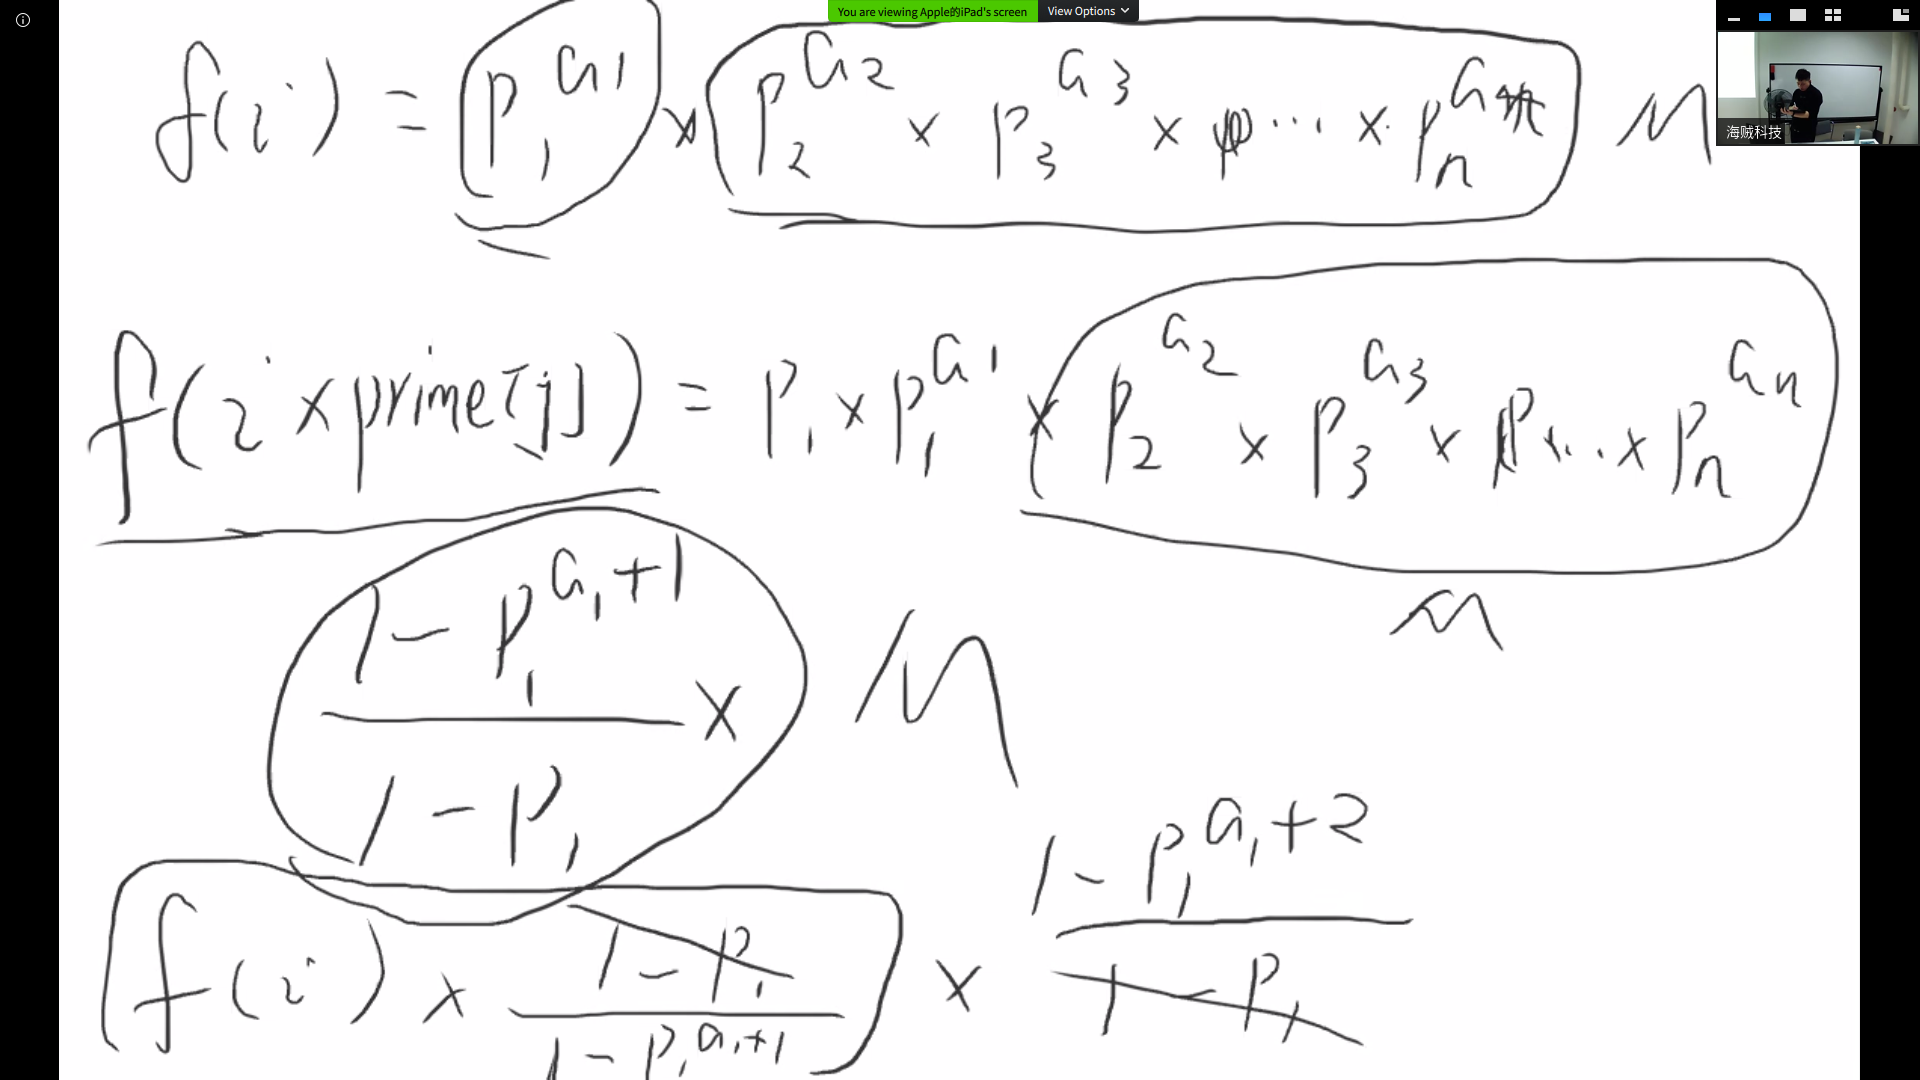 You are viewing Apple的iPad's screen View Options
海贼科技
f(i) = p₁^a1 × p₂^a2 × p₃^a3 × ... × pₙ^a M
f(i × prime[j]) = p₁ × p₁^a1 × p₂^a2 × p₃^a3 × p ... × pₙ^an
M
1 - p₁^a₁+1
× M
1 - p₁
1 - p₁^a₁+2
f(i) × 1 - p₁ × 1 - p₁
1 - p₁^a₁+1